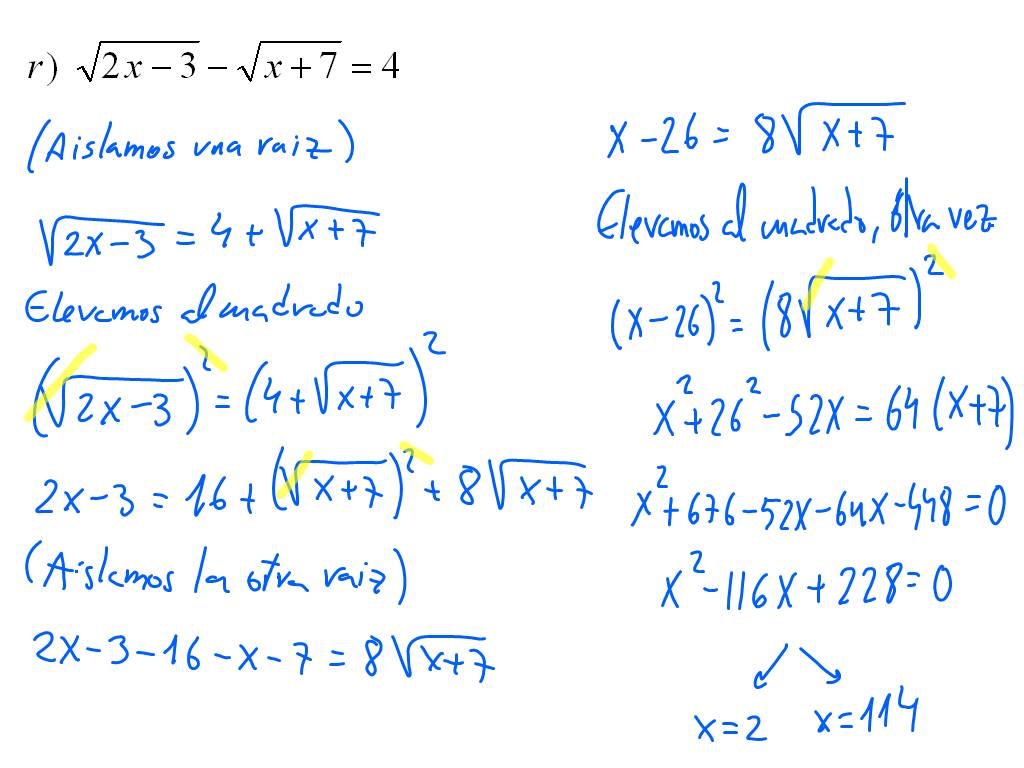 r) √(2x−3) − √(x+7) = 4
(Aislamos una raiz)
√(2x−3) = 4 + √(x+7)
Elevamos al cuadrado
(√(2x−3))² = (4+√(x+7))²
2x−3 = 16 + (√(x+7))² + 8√(x+7)
(Aislamos la otra raiz)
2x−3−16−x−7 = 8√(x+7)
x−26 = 8√(x+7)
Elevamos al cuadrado, otra vez
(x−26)² = (8√(x+7))²
x²+26²−52x = 64(x+7)
x²+676−52x−64x−448 = 0
x²−116x+228 = 0
x=2 x=114